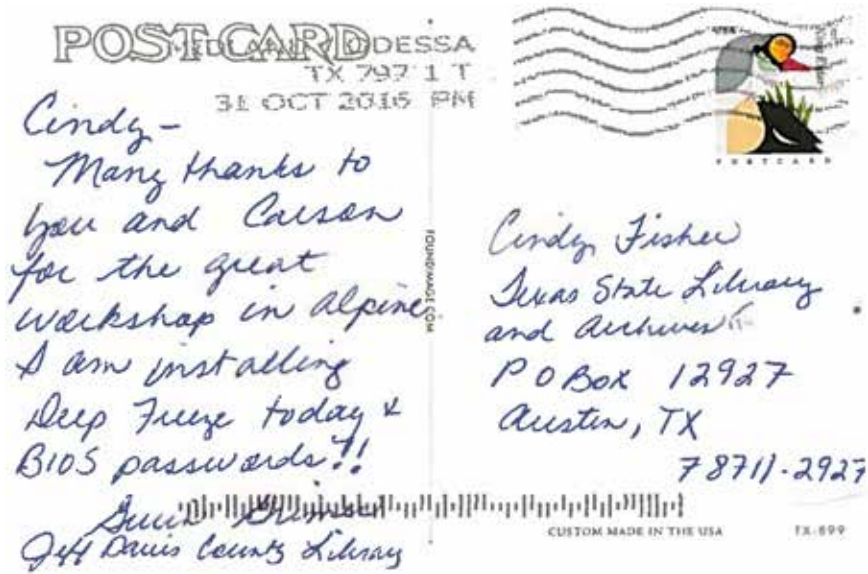 POST CARD
MIDLAND ODESSA
TX 797 1 T
31 OCT 2016 PM
USA
POSTCARD
Cindy -
Many thanks to
you and Carson
for the great
workshop in Alpine
I am installing
Deep Freeze today &
BIOS passwords!!
Gwin Grimes
Jeff Davis County Library
FOUNDIMAGE.COM
Cindy Fisher
Texas State Library
and Archives
P O Box 12927
Austin, TX
78711-2927
CUSTOM MADE IN THE USA
TX-699